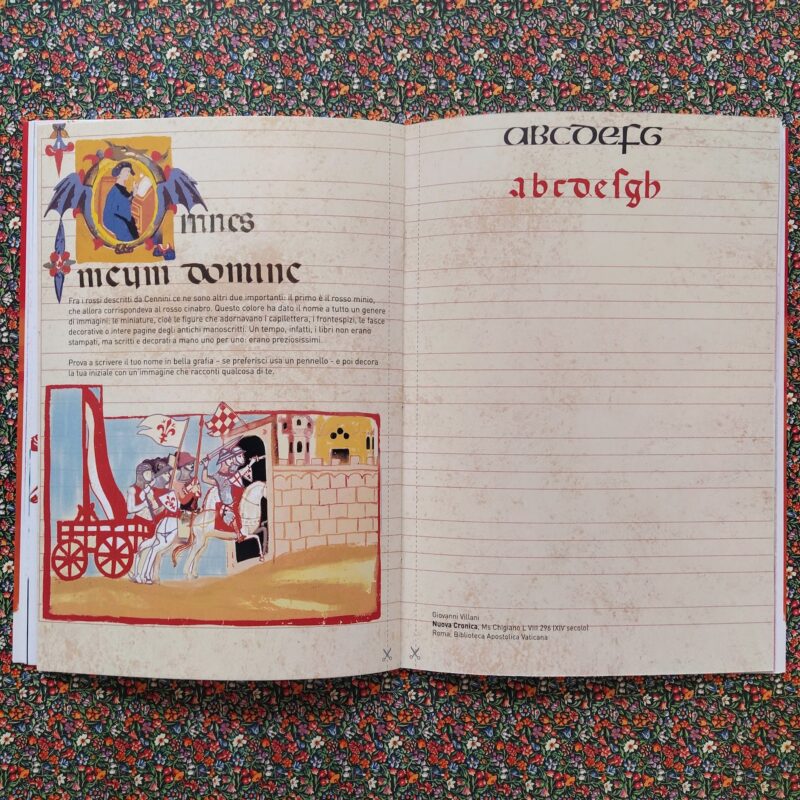 mnes
meum domine
Fra i rossi descritti da Cennini ce ne sono altri due importanti: il primo è il rosso minio,
che allora corrispondeva al rosso cinabro. Questo colore ha dato il nome a tutto un genere
di immagini: le miniature, cioè le figure che adornavano i capilettera, i frontespizi, le fasce
decorative o intere pagine degli antichi manoscritti. Un tempo, infatti, i libri non erano
stampati, ma scritti e decorati a mano uno per uno: erano preziosissimi.
Prova a scrivere il tuo nome in bella grafia - se preferisci usa un pennello - e poi decora
la tua iniziale con un'immagine che racconti qualcosa di te.
abcdefg
abcdefgh
Giovanni Villani
Nuova Cronica, Ms Chigiano L VIII 296 (XIV secolo)
Roma, Biblioteca Apostolica Vaticana